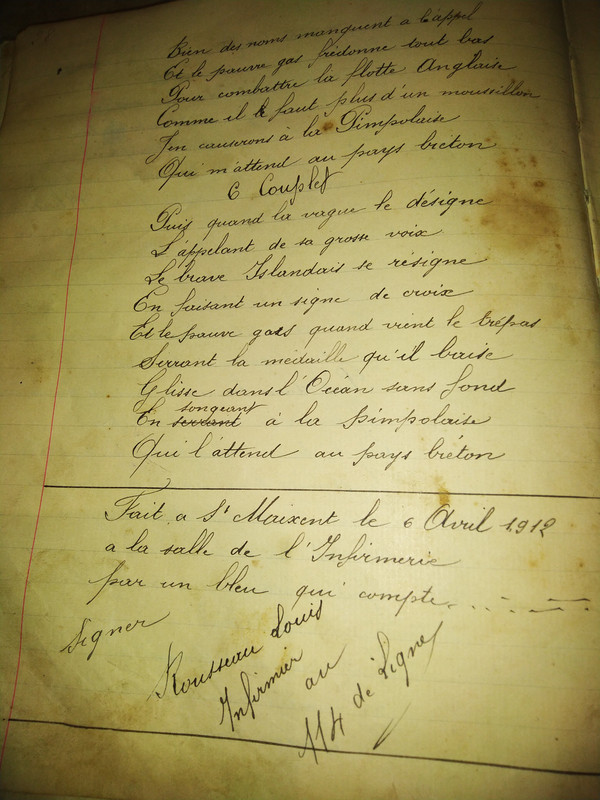 Bien des noms manquent a l'appel
Et le pauvre gas fredonne tout bas
Pour combattre la flotte Anglaise
Comme il faut plus d'un moussillon
J'en causerons à la Pimpolaise
Qui m'attend au pays breton
6 Couplet
Puis quand la vague le désigne
L'appelant de sa grosse voix
Le brave Islandais se résigne
En faisant un signe de croix
Et le pauve gars quand vient le trépas
Serrant la médaille qu'il baise
Glisse dans l'Océan sans fond
En serrant songeant à la Pimpolaise
Qui l'attend au pays bréton
Fait a St Maixent le 6 Avril 1912
a la salle de l'Infirmerie
par un bleu qui compte
Signer
Rousseau Louis
Infirmier
au
114 de Ligne